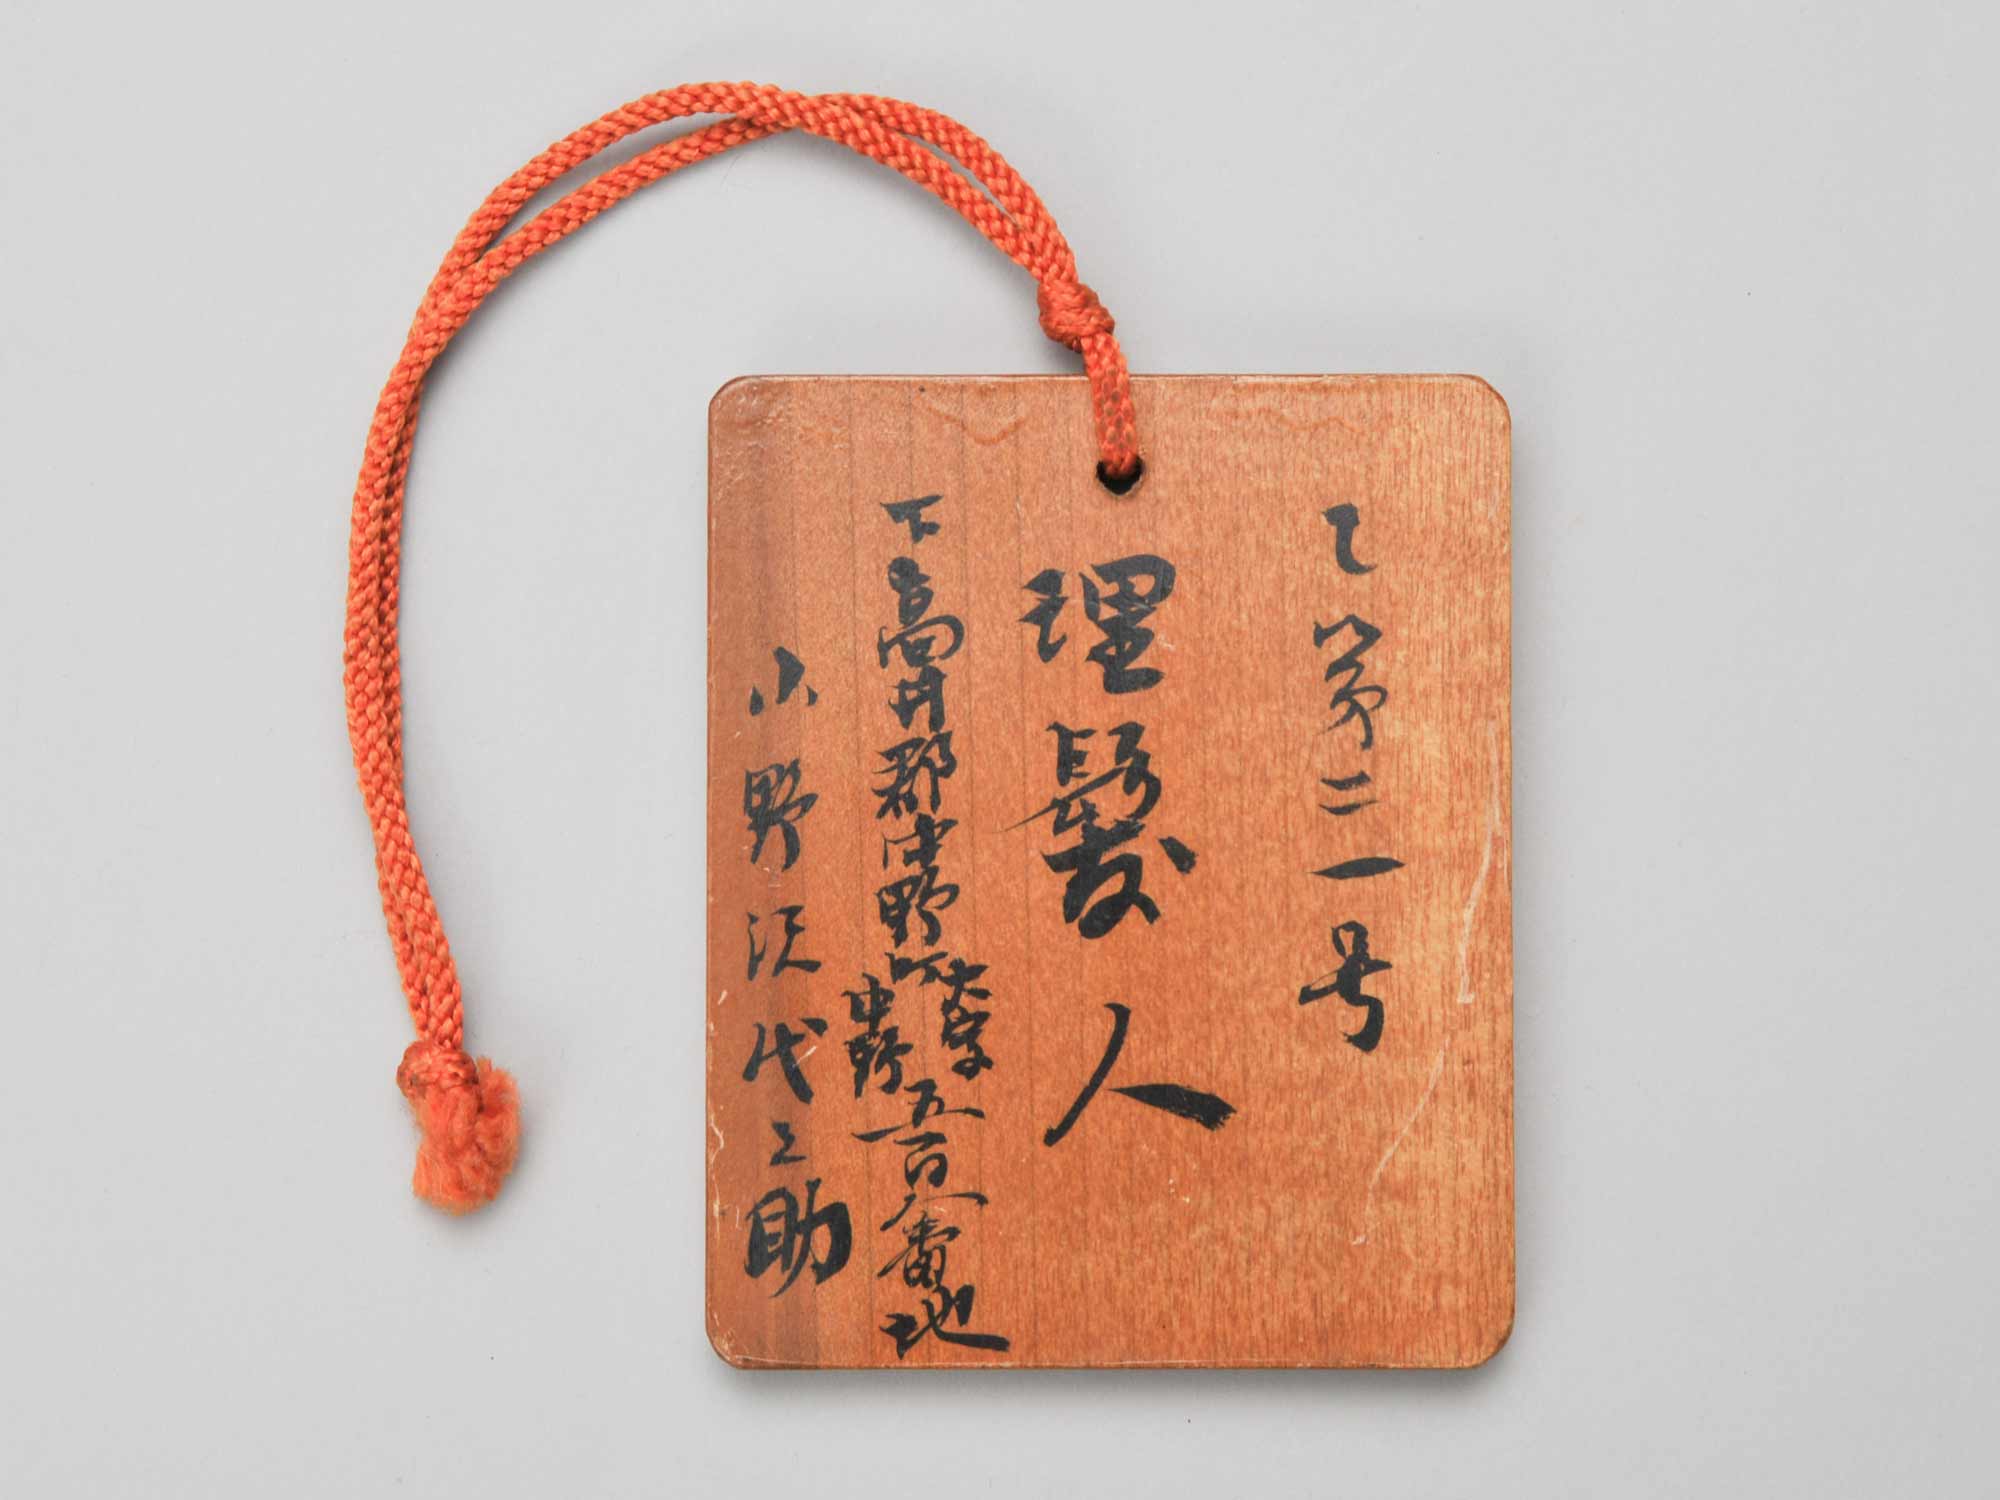 乙第二一号
理髪人
下高井郡中野町大字中野五百八番地
小野沢代之助